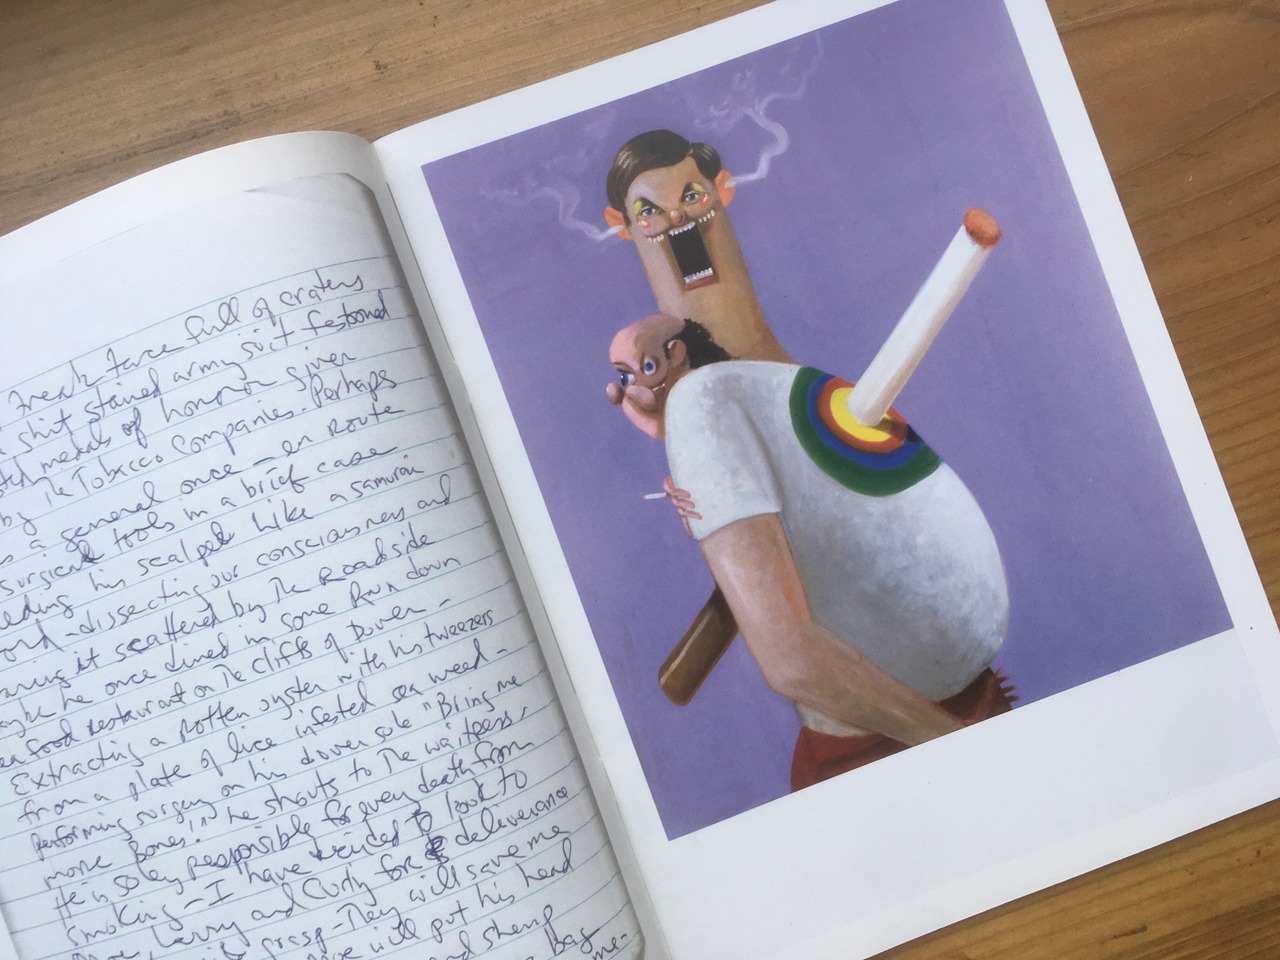 Freak face full of craters
shit stained army suit festooned
medals of honor given
by The Tobacco Companies. Perhaps
a general once — en Route
surgical tools in a brief case
his scalpel Like a samurai
dissecting our consciousness and
it scattered by The Roadside
he once dined in some Run down
food restaurant on The cliffs of Dover —
Extracting a Rotten oyster with his tweezers
from a plate of lice infested sea weed —
performing surgery on his dover sole "Bring me
more Bones!" he shouts to The waitress,
He is solely Responsible for every death from
smoking — I have decided to look to
Larry and Curly for deliverance
grasp — They will save me
will put his head
and shemp
Bag
me —